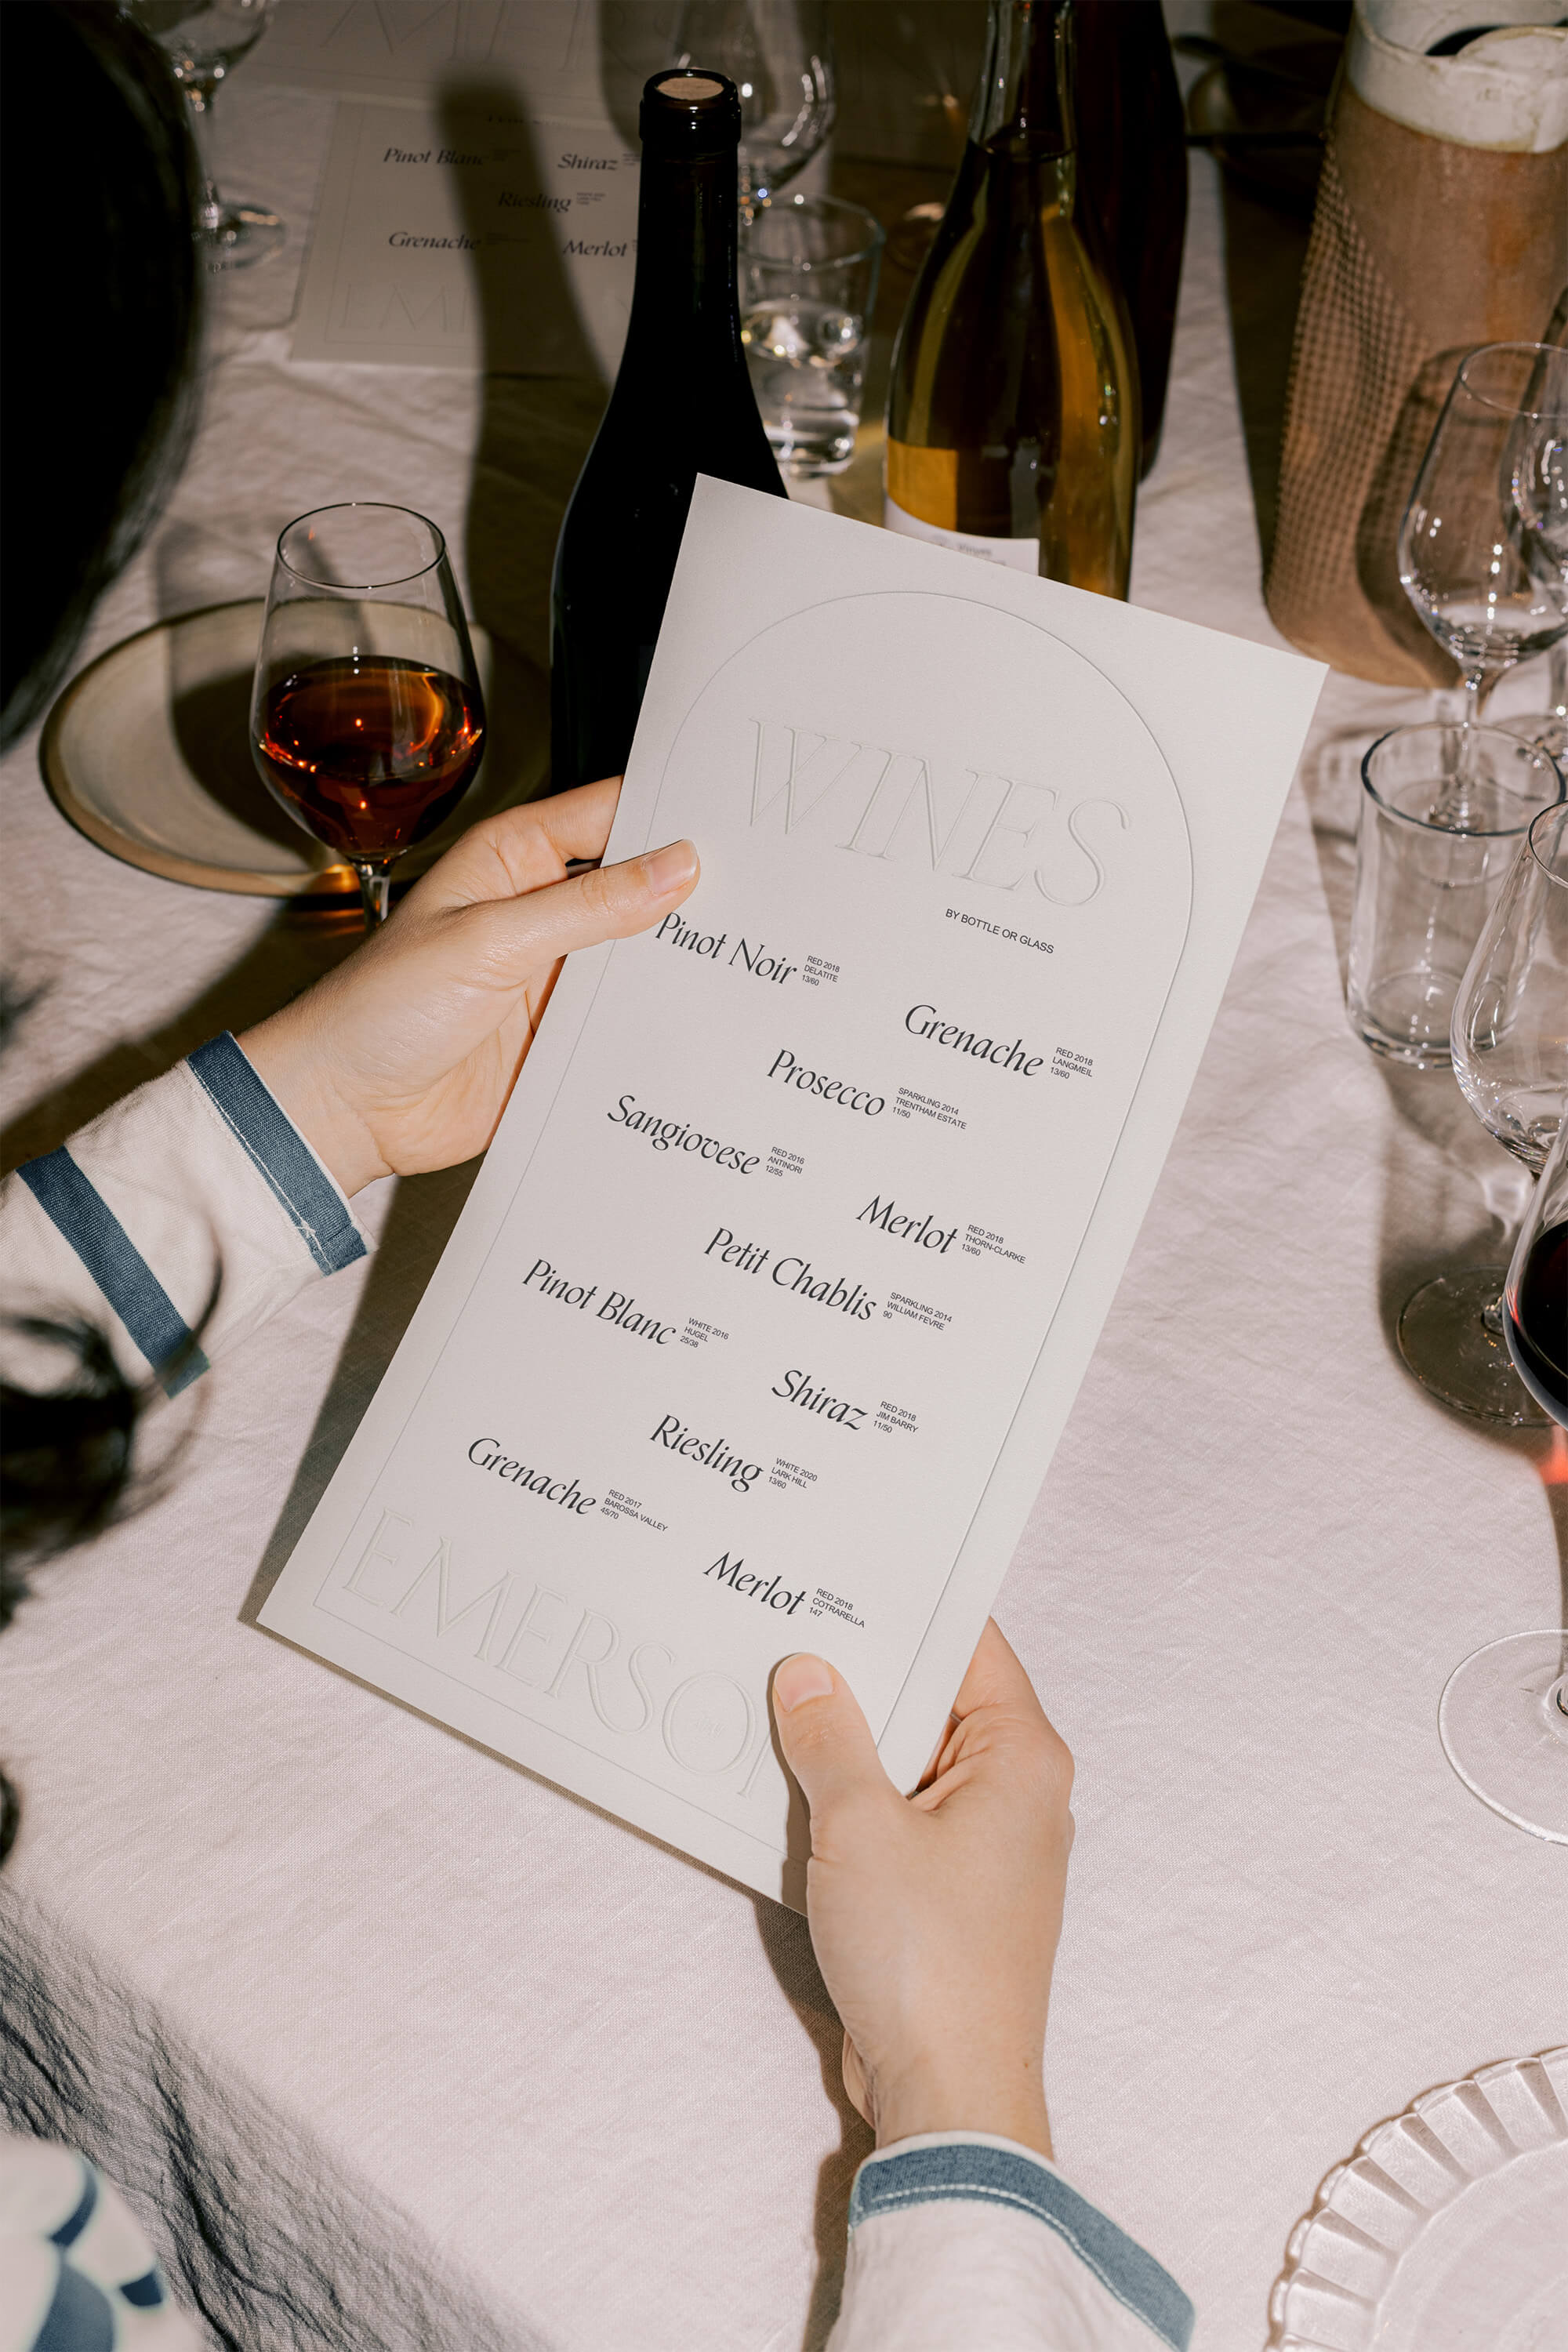 Pinot Blanc
Shiraz
Riesling
Grenache
Merlot
WINES
BY BOTTLE OR GLASS
Pinot Noir
RED 2018
DELATITE
13/60
Grenache
RED 2018
LANGMEIL
13/60
Prosecco
SPARKLING 2014
TRENTHAM ESTATE
11/50
Sangiovese
RED 2016
ANTINORI
12/55
Merlot
RED 2018
THORN-CLARKE
13/60
Petit Chablis
SPARKLING 2014
WILLIAM FEVRE
90
Pinot Blanc
WHITE 2016
HUGEL
25/38
Shiraz
RED 2018
JIM BARRY
11/50
Riesling
WHITE 2020
LARK HILL
13/60
Grenache
RED 2017
BAROSSA VALLEY
45/70
Merlot
RED 2018
COTRARELLA
147
EMERSO